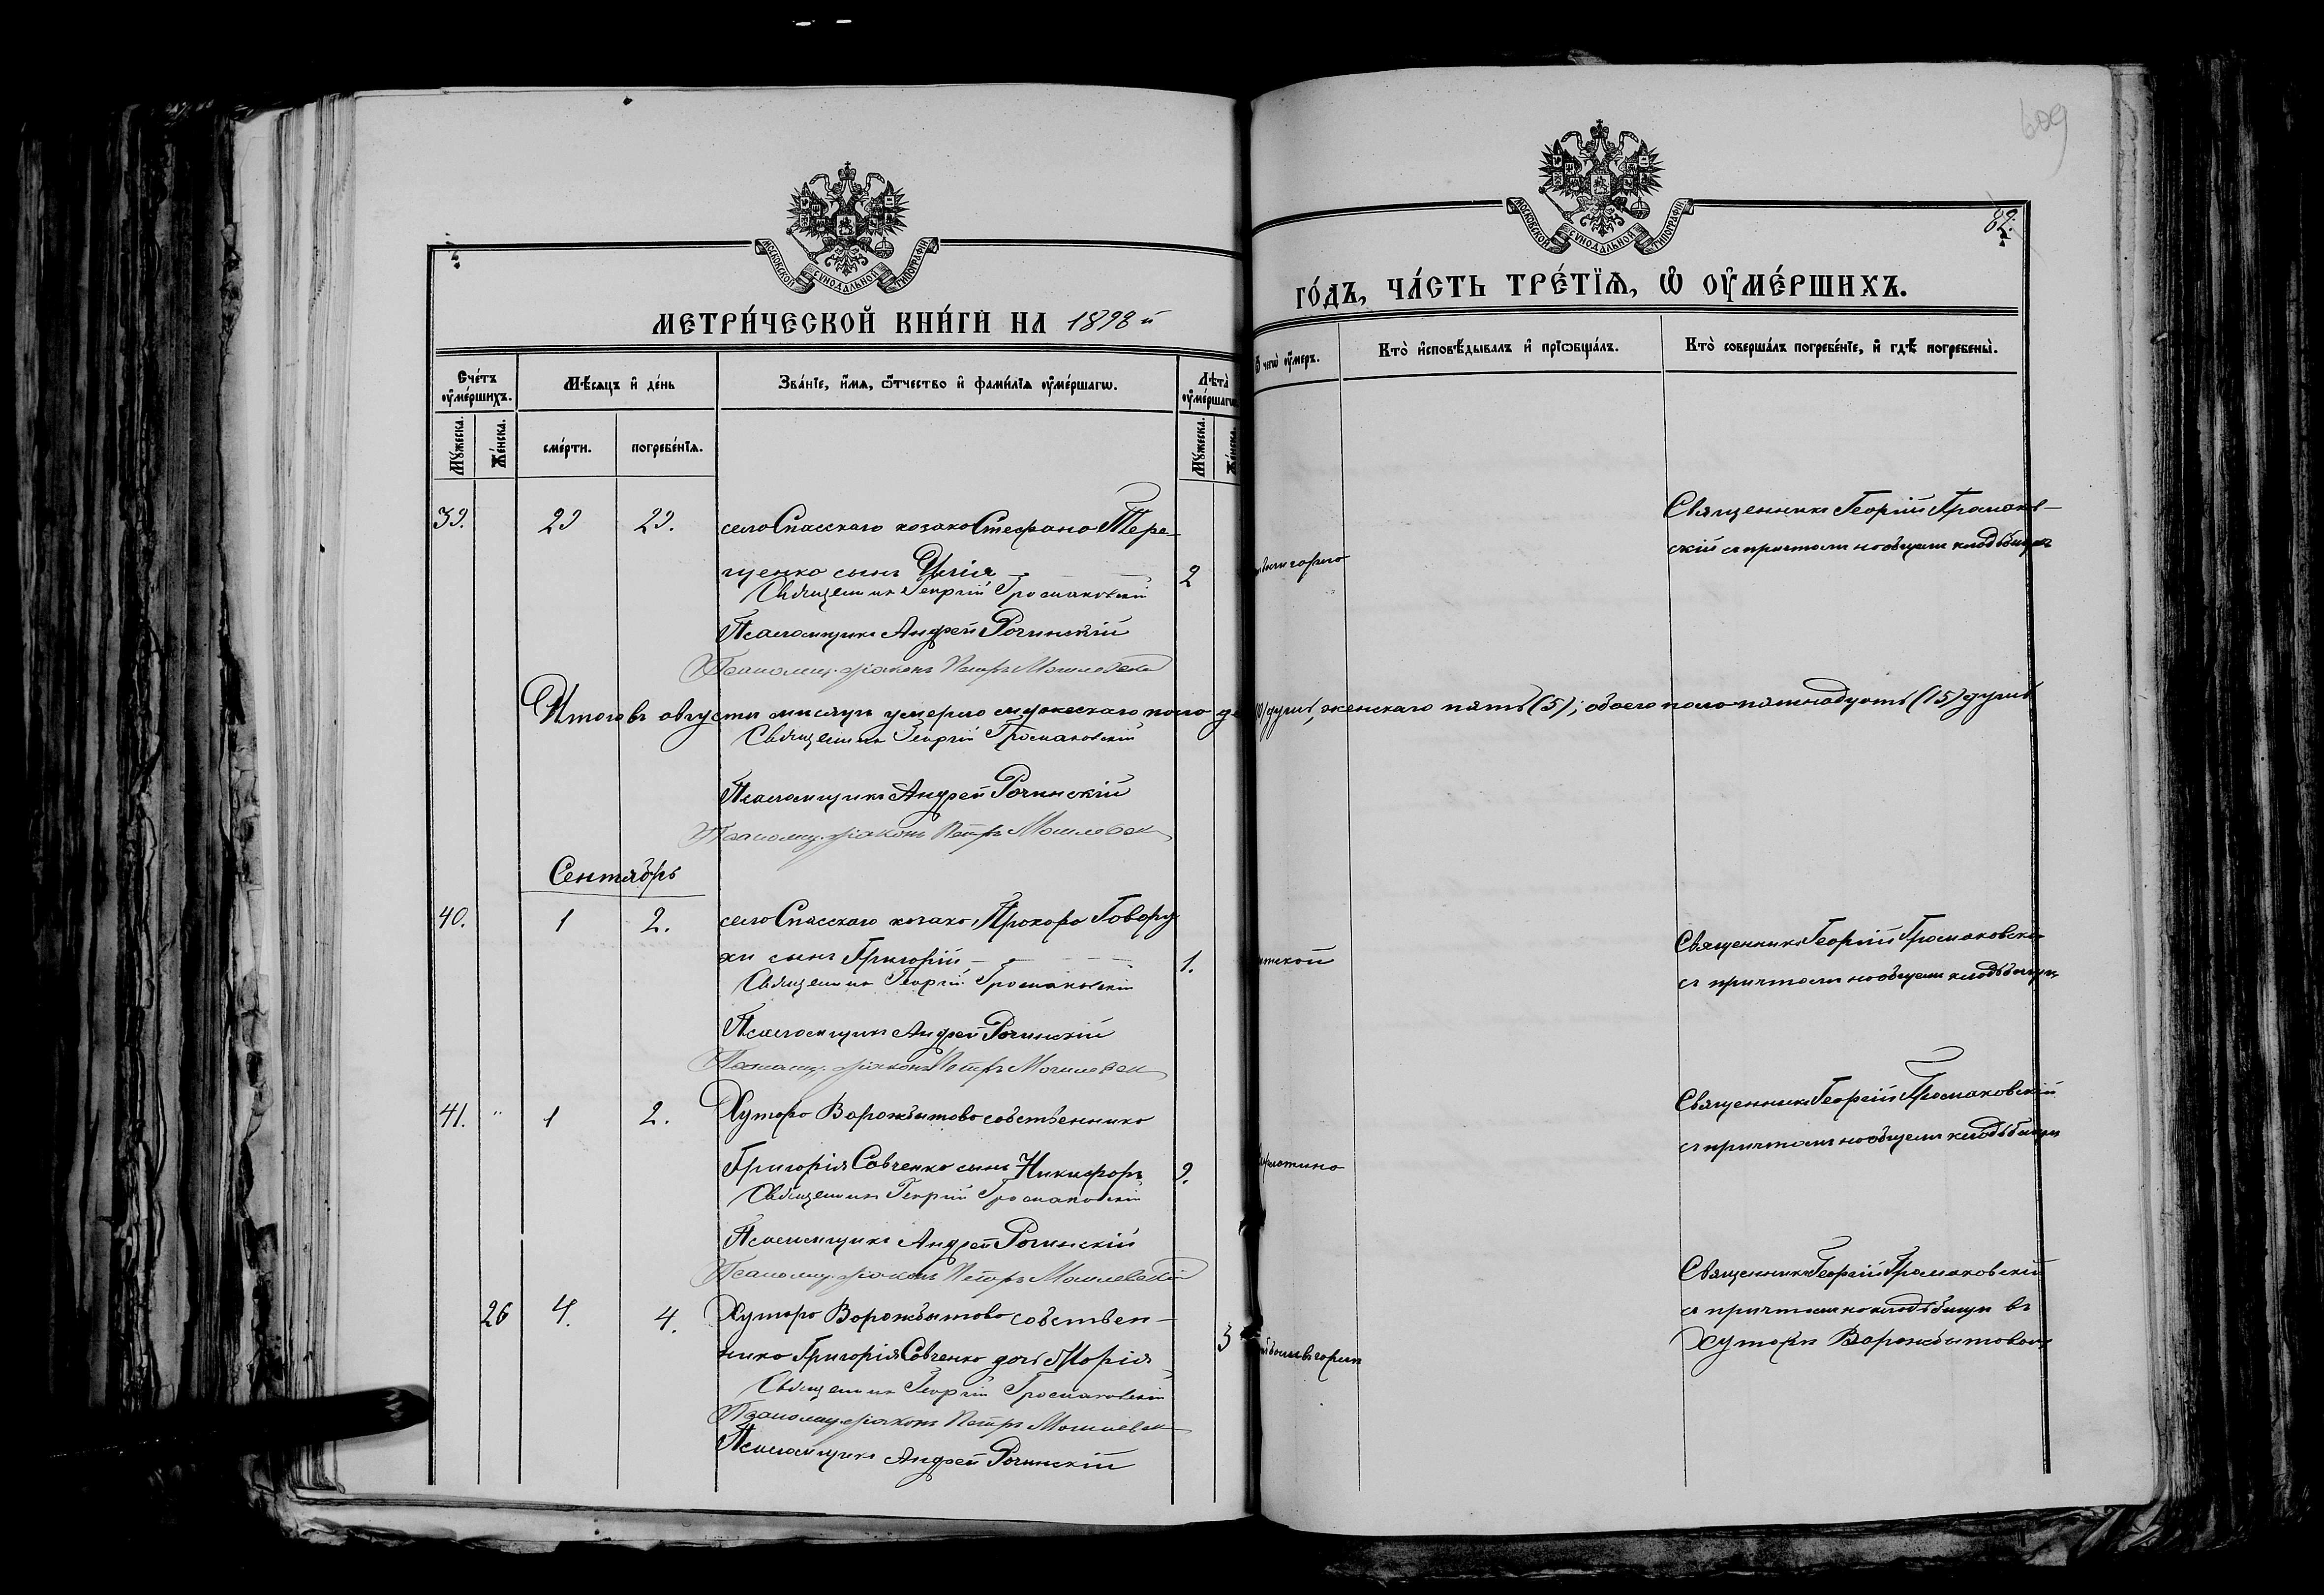 609
МОСКОВСКОЙ СУНОДАЛЬНОЙ ТИПОГРАФІИ
МОСКОВСКОЙ СУНОДАЛЬНОЙ ТИПОГРАФІИ
82.
МЕТРИ́ЧЕСКОЙ КНИ́ГИ НА 1898 й
ГО́ДЪ, ЧА́СТЬ ТРЕ́ТЇѦ, Ѡ ОУ҆МЕ́РШИХЪ.
Сче́тъ оу҆ме́ршихъ.
Мѣ́сяцъ и҆ де́нь
Зва́нїе, и҆́мя, ѻ҆́тчество и҆ фами́лїя оу҆ме́ршагѡ.
Лѣта̀ оу҆ме́ршагѡ
чегѡ̀ оу҆́меръ.
Кто̀ и҆сповѣ́дывалъ и҆ прїѡбща́лъ.
Кто̀ соверша́лъ погребе́нїе, и҆ гдѣ̀ погребены̀.
Му́жеска.
Же́нска.
сме́рти.
погребе́нїя.
Му́жеска.
Же́нска.
39. 29 29. села Спасскаго козака Стефана Тере-
щенка сынъ Илія 2
Священникъ Георгій Громаковскій
Псаломщикъ Андрей Рочинскій
Псаломщ. діаконъ Петръ
Священникъ Георгій Громаков-
скій съ причтомъ на общемъ кладбищѣ
Итого въ августѣ мѣсяцѣ умерло мужескаго пола де душъ, женскаго пять (5); обоего пола пятнадцать (15) душъ
Священникъ Георгій Громаковскій
Псаломщикъ Андрей Рочинскій
Псаломщ. діаконъ Петръ
Сентябрь
40. 1 2. села Спасскаго козака Прокофа Говору
хи сынъ Григорій 1.
Священникъ Георгій Громаковскій
Псаломщикъ Андрей Рочинскій
Псаломщ. діаконъ Петръ
Священникъ Георгій Громаковскій
съ причтомъ на общемъ кладбищѣ
41. " 1 2. Хутора Ворожбитова собственника
Григорія Савченка сынъ Никифоръ 9.
Священникъ Георгій Громаковскій
Псаломщикъ Андрей Рочинскій
Псаломщ. діаконъ Петръ
Священникъ Георгій Громаковскій
съ причтомъ на общемъ кладбищѣ
26 4. 4. Хутора Ворожбитова собствен-
ника Григорія Савченка дочь Марія 3
Священникъ Георгій Громаковскій
Псаломщ. діаконъ Петръ
Псаломщикъ Андрей Рочинскій
Священникъ Георгій Громаковскій
съ причтомъ на кладбищѣ въ
Хуторѣ Ворожбитовомъ